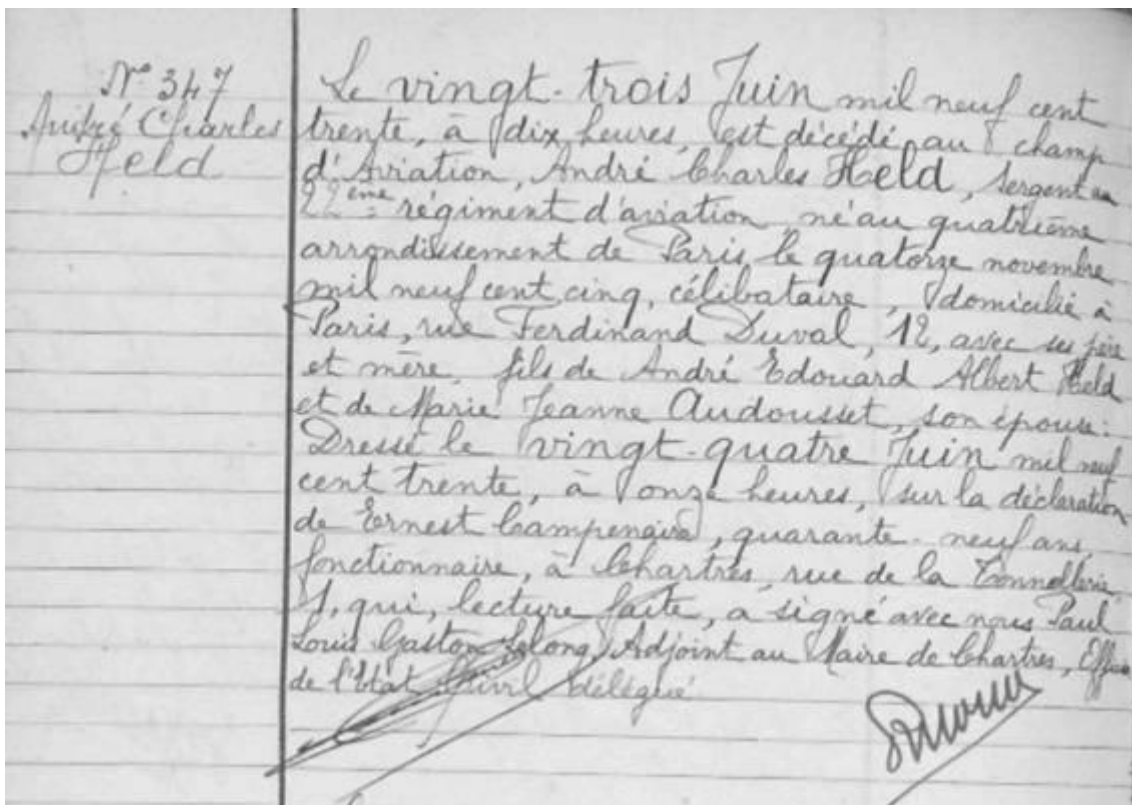 N° 347
André Charles
Held
Le vingt-trois Juin mil neuf cent
trente, à dix heures, est décédé au champ
d'Aviation, André Charles Held, Sergent au
22ème régiment d'aviation, né au quatrième
arrondissement de Paris, le quatorze novembre
mil neuf cent cinq, célibataire, domicilié à
Paris, rue Ferdinand Duval, 12, avec ses père
et mère, fils de André Edouard Albert Held
et de Marie Jeanne Audousset, son épouse:
Dressé le vingt-quatre Juin mil neuf
cent trente, à onze heures, sur la déclaration
de Ernest, quarante-neuf ans,
fonctionnaire, à Chartres, rue de la Tonnellerie
1, qui, lecture faite, a signé avec nous Paul
Louis Gaston Lelong, Adjoint au Maire de Chartres, Officier
de l'Etat Civil délégué